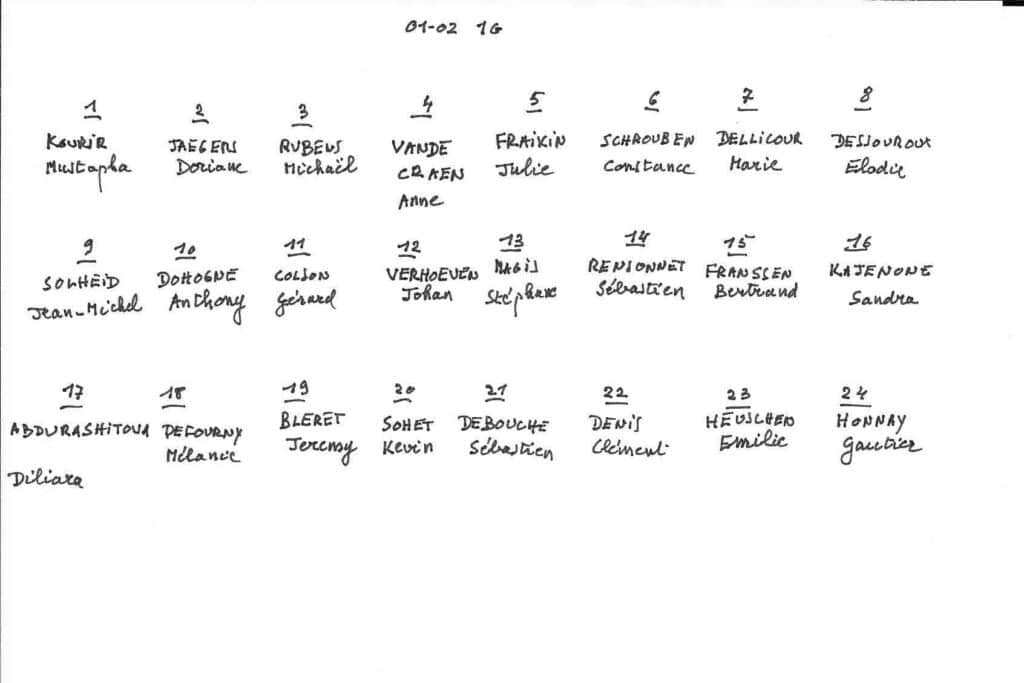 01-02 1G
1 2 3 4 5 6 7 8
KOURIR JAEGERS RUBENS VANDE FRAIKIN SCHROUBEN DELLICOUR DESSOUROUX
Mustapha Doriane Michaël CRAEN Julie Constance Marie Elodie
Anne
9 10 11 12 13 14 15 16
SOLHEID DOHOGNE COLSON VERHOEVEN MAGIS RENSONNET FRANSSEN KAJENONE
Jean-Michel Anthony Gérard Johan Stéphane Sébastien Bertrand Sandra
17 18 19 20 21 22 23 24
ABDURASHITOVA DEFOURNY BLERET SOHET DEBOUCHE DENIS HEUSCHEN HONNAY
Mélanie Jeremy Kevin Sébastien Clément Emilie Gautier
Diliara